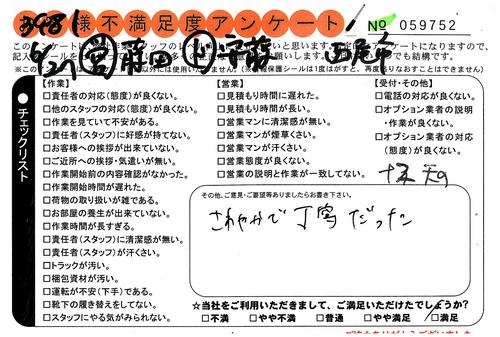 お客様不満足度アンケート № 059752
このアンケートに
記入
【作業】
□責任者の対応(態度)が良くない。
□他のスタッフの対応(態度)が良くない。
□作業を見ていて不安がある。
□責任者(スタッフ)に好感が持てない。
□お客様への挨拶が出来ていない。
□ご近所への挨拶・気遣いが無い。
□作業開始前の内容確認がなかった。
□作業開始時間が遅れた。
□荷物の取り扱いが雑である。
□お部屋の養生が出来ていない。
□作業時間が長すぎる。
□責任者(スタッフ)に清潔感が無い。
□責任者(スタッフ)が汗くさい。
□トラックが汚い。
□梱包資材が汚い。
□運転が不安(下手)である。
□靴下の履き替えをしてない。
□スタッフにやる気がみられない。
【営業】
□見積もり時間に遅れた。
□見積もり時間が長い。
□営業マンに清潔感が無い。
□営業マンが煙草くさい。
□営業マンが汗くさい。
□営業態度が良くない。
□営業の説明と作業が一致してない。
【受付・その他】
□電話の対応が良くない。
□オプション業者の説明
・作業が良くない。
□オプション業者の対応
(態度)が良くない。
●チェックリスト
その他、ご意見・ご要望等ありましたらお書き下さい。
さわやかで丁寧だった
☆当社をご利用いただきまして、ご満足いただけたでしょうか?
□不満 □やや不満 □普通 □やや満足 □満足